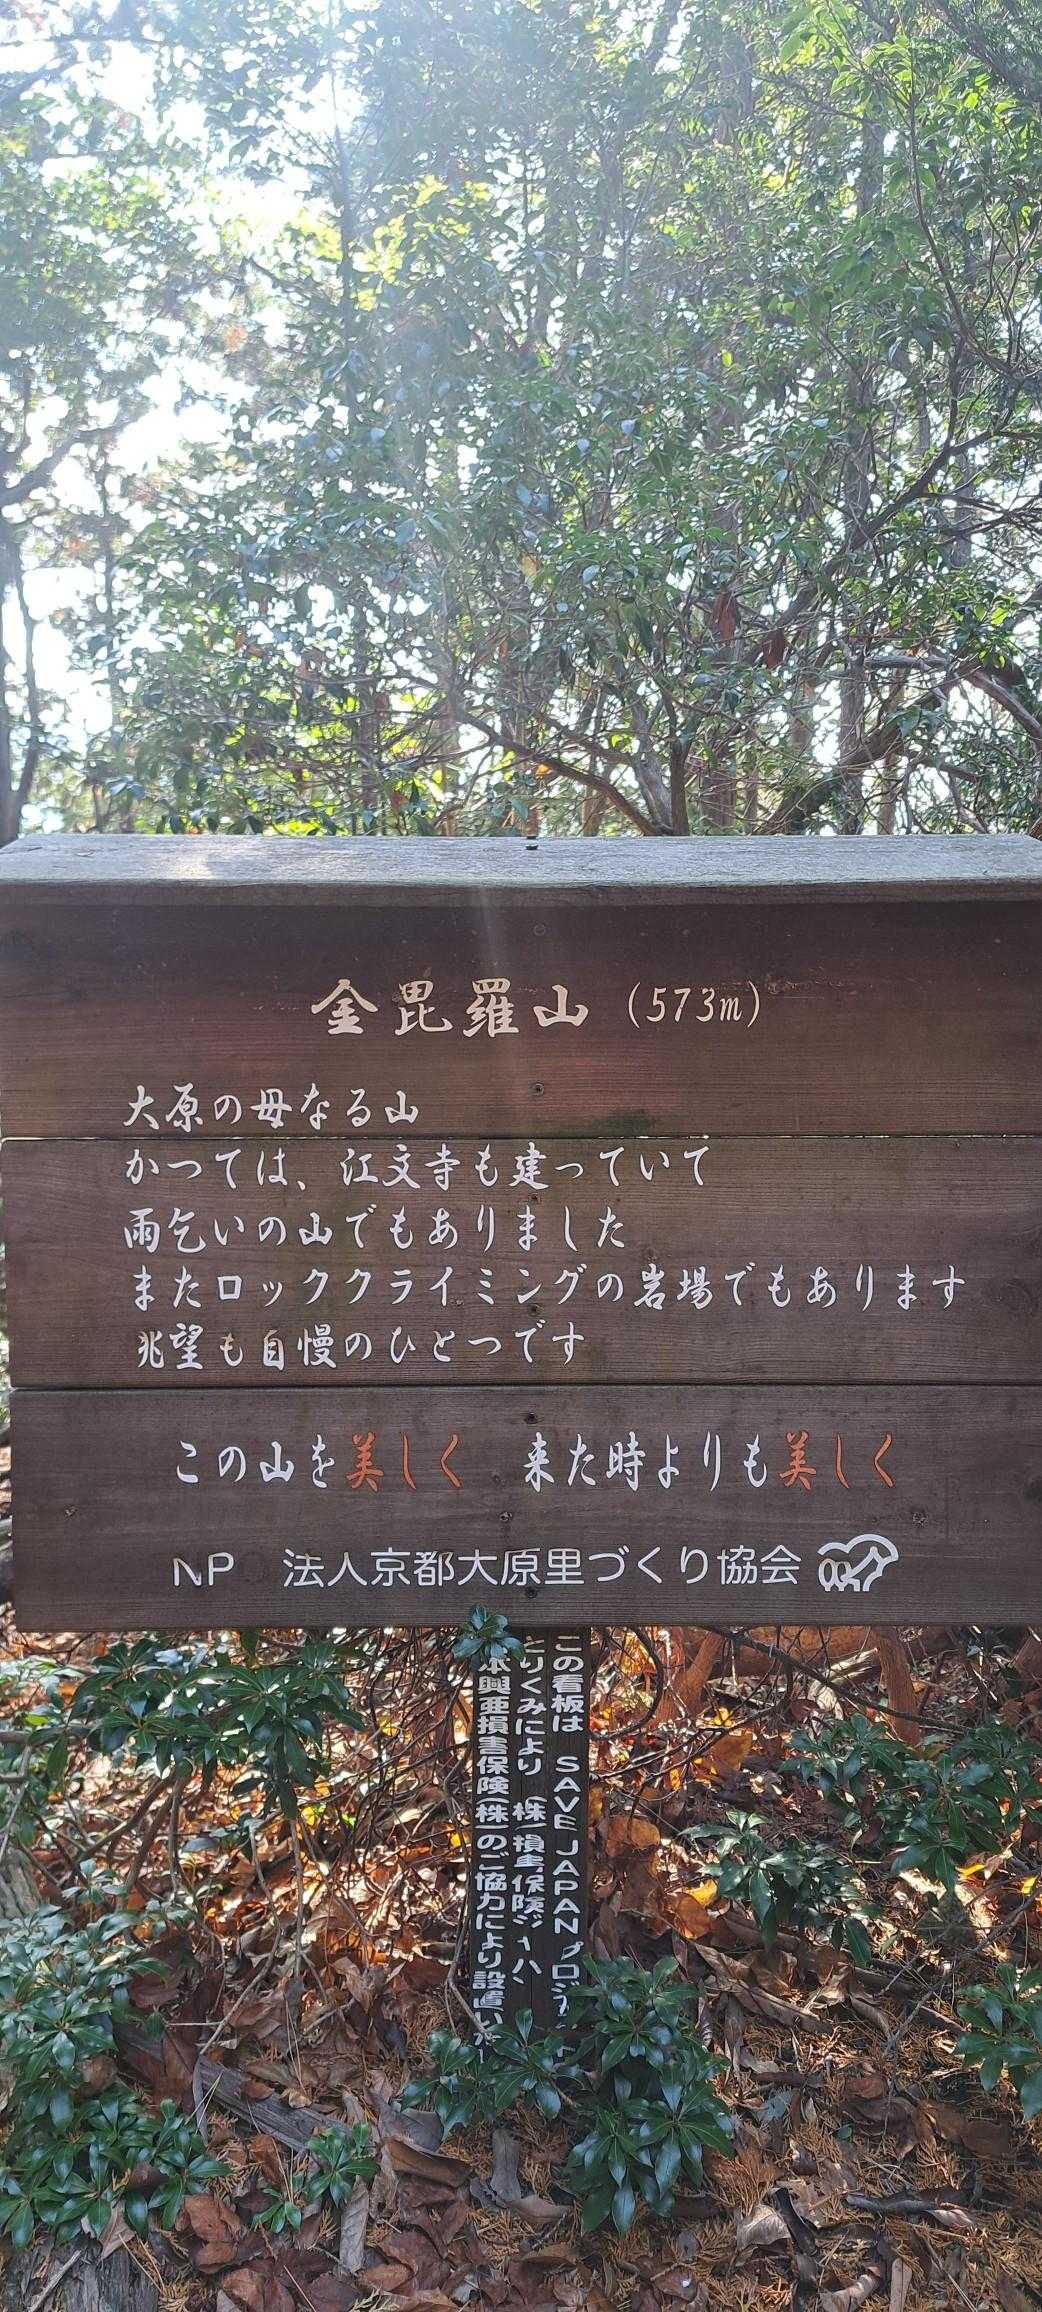 金毘羅山 (573m)
大原の母なる山
かつては、江文寺も建っていて
雨乞いの山でもありました
またロッククライミングの岩場でもあります
兆望も自慢のひとつです
この山を美しく 来た時よりも美しく
NP 法人京都大原里づくり協会
この看板は SAVE JAPAN プロジ
とりくみにより (株)損害保険ジ ハ
本興亜損害保険(株)のご協力により設置い